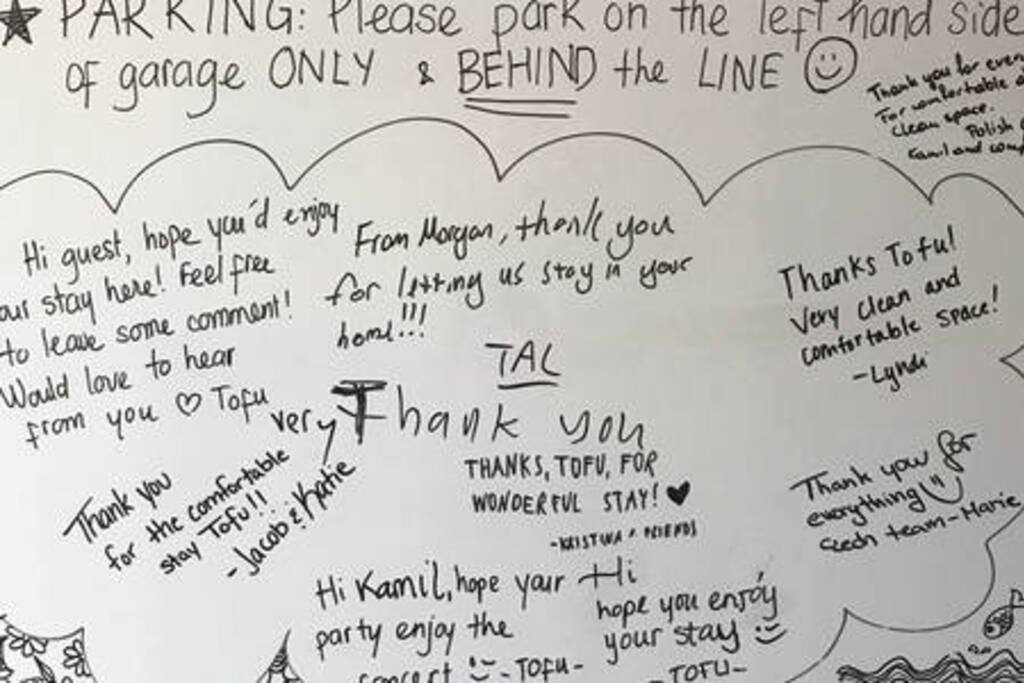 PARKING: Please park on the left hand side
of garage ONLY & BEHIND the LINE
Thank you for
For comfortable
clean space.
Polish
Kamil and
Hi guest, hope you'd enjoy
our stay here! Feel free
to leave some comment!
Would love to hear
from you ♡ Tofu
From Morgan, thank you
for letting us stay in your
home!!!
TAL
very Thank you
THANKS, TOFU, FOR
WONDERFUL STAY! ♥
-KRISTINA & FRIENDS
Thanks Tofu!
Very clean and
comfortable space!
-Lyndi
Thank you
for the comfortable
stay Tofu!!
-Jacob & Katie
Thank you for
everything
Czech team-Marie
Hi Kamil, hope your
party enjoy the
concert -TOFU-
Hi
hope you enjoy
your stay
-TOFU-